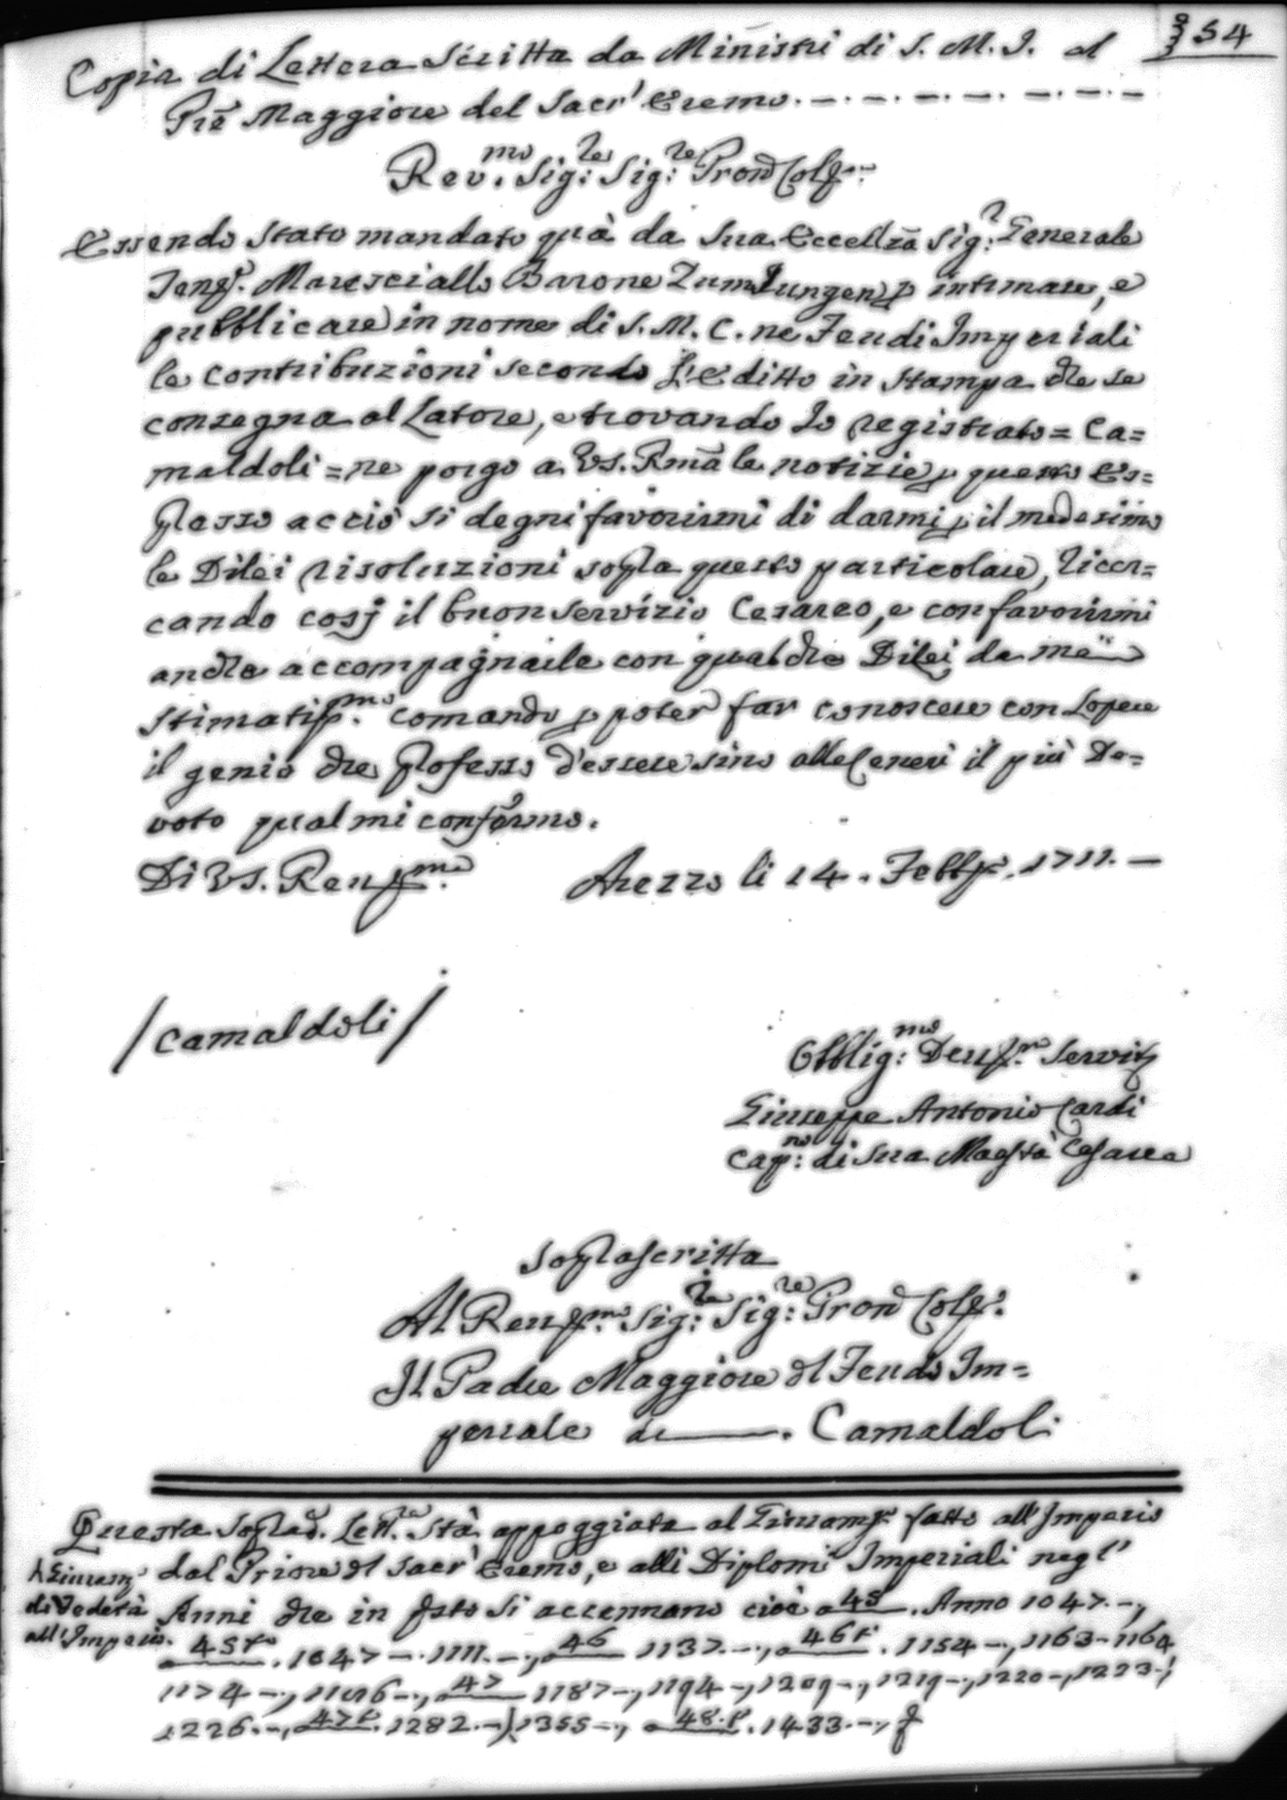 354
Copia di Lettera Scritta da Ministri di S. M. I. al
Prẽ Maggiore del Sacr' Eremo.
Rev.mo Sig:re Sig:re Pron Col.
Essendo stato mandato quà da Sua Eccellzã Sig:r Generale
Maresciallo Barone Zumjungen p intimare, e
pubblicare in nome di S. M. C. ne Feudi Imperiali
le contribuzioni secondo l'Editto in stampa che se
consegna al Latore, e trovando Io registrato = Ca=
maldoli = ne porgo a VS. Rmã le notizie p questo Es=
presso acciò si degni favorirmi di darmi p il medesimo
le Dilei risoluzioni sopra questo particolare, ricer=
cando cosj il buon servizio Cesareo, e con favorirmi
anche accompagnarle con qualche Dilei da me
stimatiss.mo comando p poter far conoscere con Lopere
il genio che professo d'essere sino alle Ceneri il più De=
voto qual mi confermo.
Di VS. Reu.ma Arezzo li 14. Febbr. 1711. —
/Camaldoli/
Obblig:mo Deu.mo Servit
Giuseppe Antonio Cardi
Cap:no di Sua Maestà Cesarea
Soprascritta
Al Reu.mo Sig:re Sig:re Pron Col.
Il Padre Maggiore dl Feudo Im=
periale di —. Camaldoli
Questa Soprad. Lett.ra stà appoggiata al Giuram.to fatto all'Imperio
dal Priore dl Sacr' Eremo, e alli Diplomi Imperiali negl'
Anni che in qsto si accennano cioè a 45. Anno 1047. —,
h Giuram.
di Fedeltà
all'Imperio.
a 45 t. 1047 —. 1111. —, a 46 1137. —, a 46 t. 1154 —, 1163 - 1164
1174 —, —, a 47 1187 —, 1194 —, 1209 —, 1219 —, 1220 —, 1223 —,
1226. —, a 47 t. 1282. —, 1355 —, a 48. t. 1433. —,